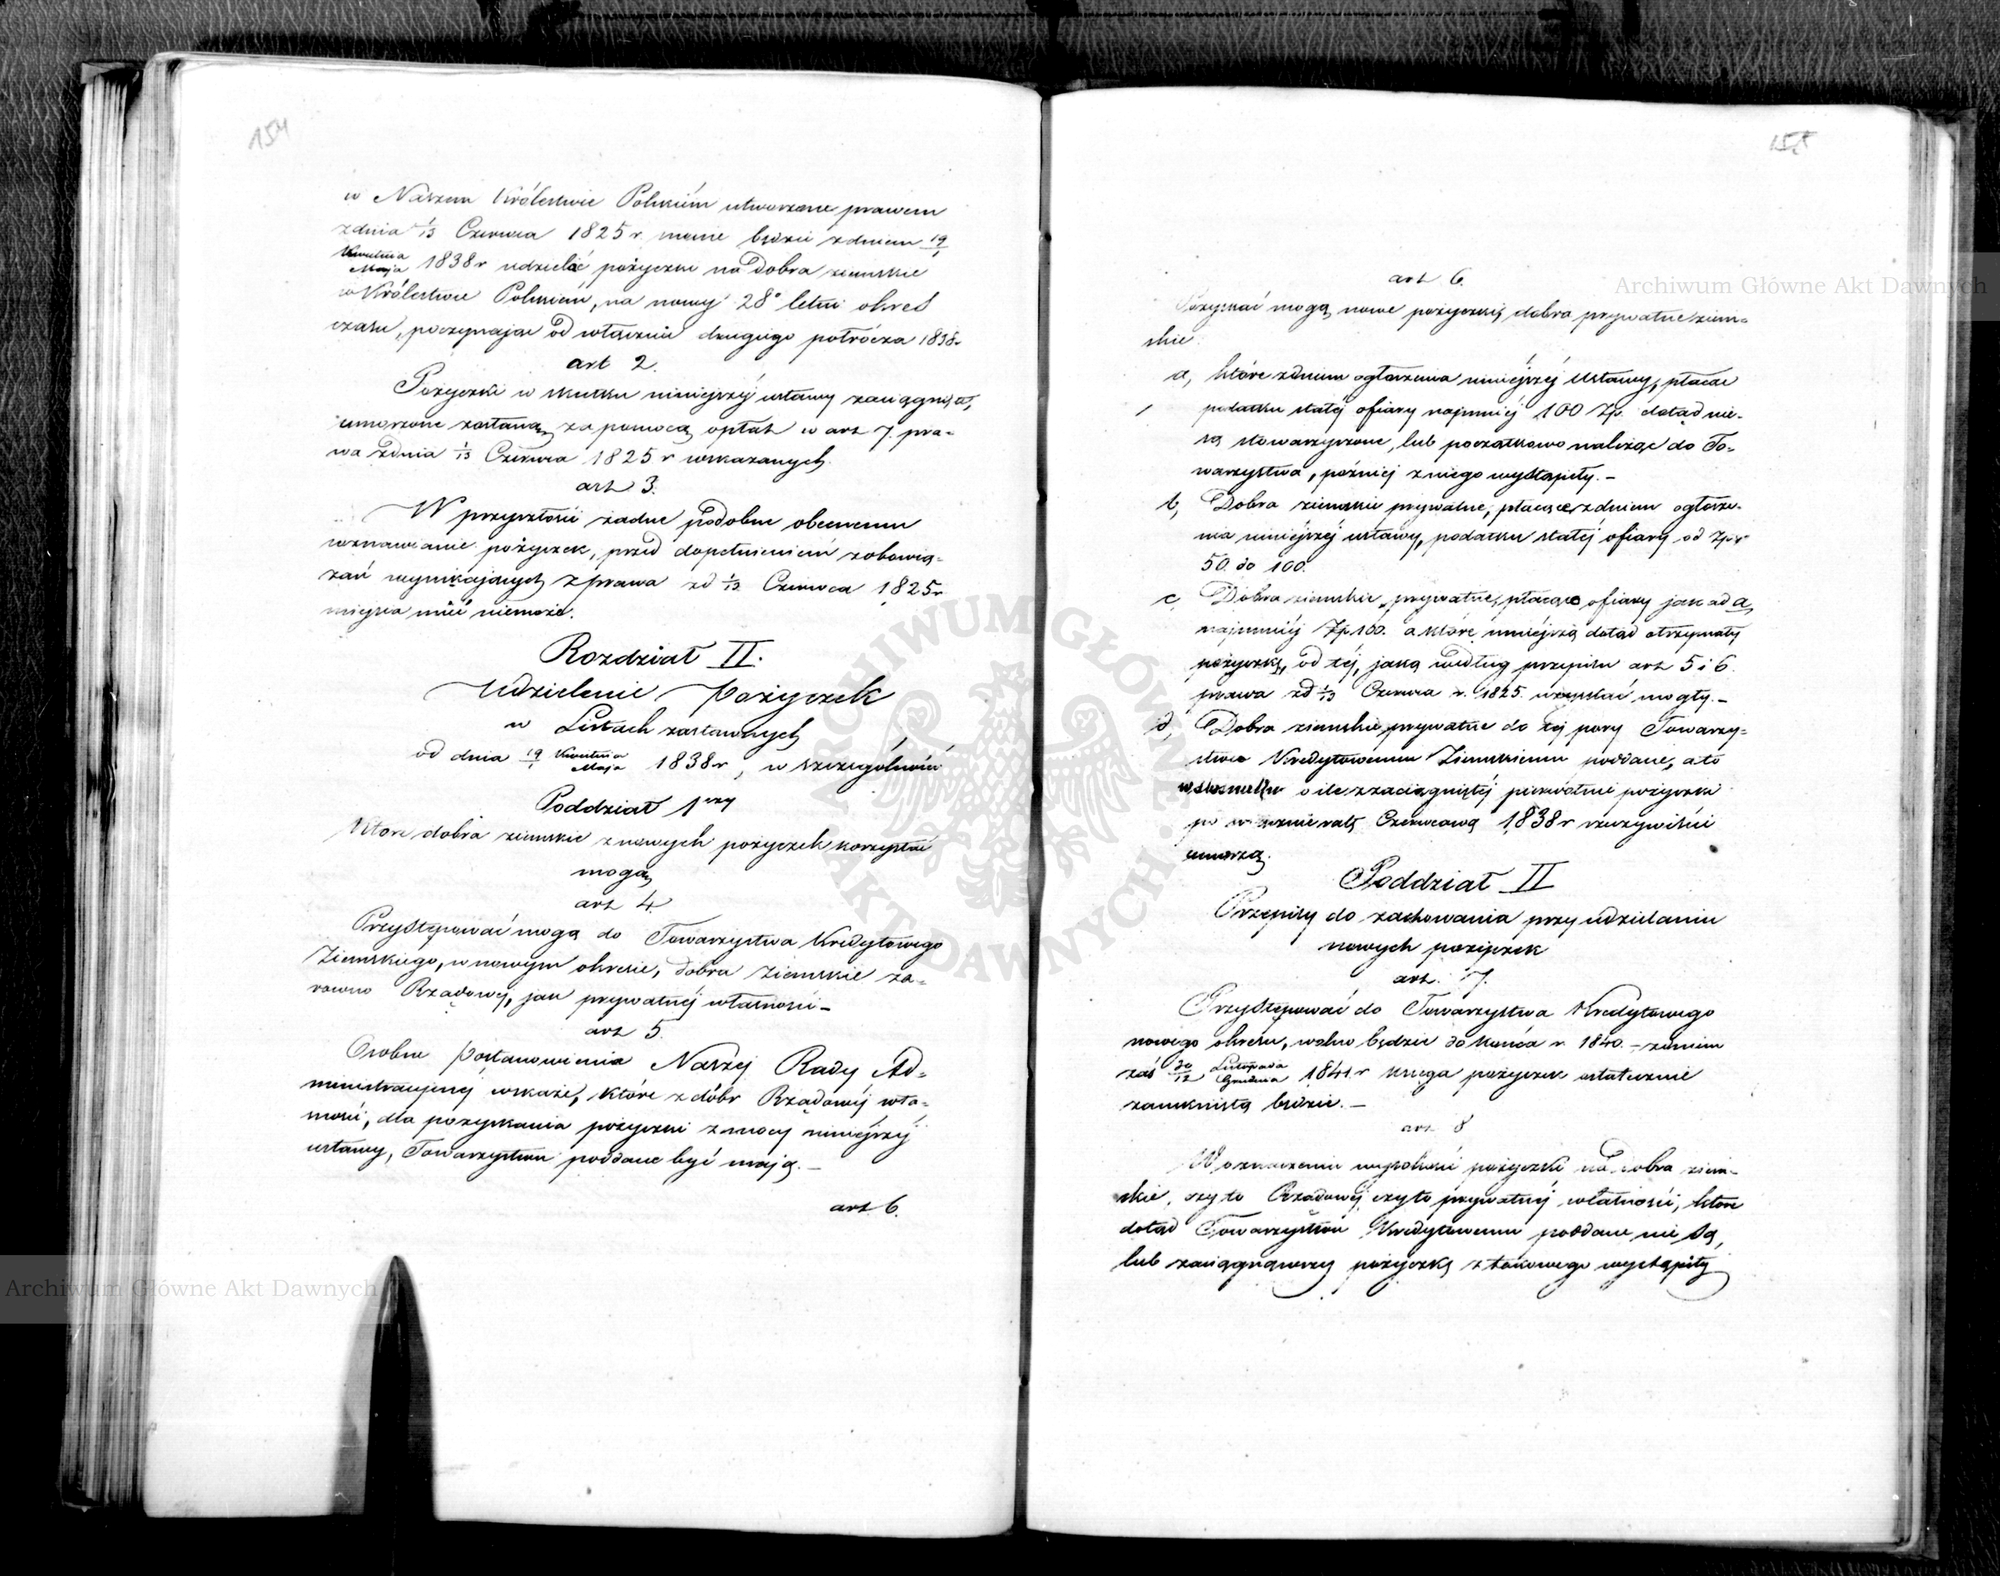 154
w Naszem Królestwie Polskiém utworzone prawem
z dnia 1/13 Czerwca 1825 r. mocne będzie z dniem 19/1
Kwietnia/Maja 1838 r udzielać pożyczki na dobra ziemskie
w Królestwie Polskiém, na nowy 28° letni okres
czasu, poczynając od włącznie drugiego półrócza 1838 r
art 2.
Pożyczki w skutku niniejszéj ustawy zaciągnięte,
umorzone zostaną za pomocą opłat w art 7. pra-
wa z dnia 1/13 Czerwca 1825 r wskazanych.
art 3.
W przyszłości żadne podobne obecnemu
wznawianie pożyczek, przed dopełnieniem zobowią-
zań wynikających z prawa zd 1/13 Czerwca 1825 r
miejsca mieć niemoże.
Rozdział II.
Udzielenie pożyczek
w Listach zastawnych
od dnia 19/1 Kwietnia/Maja 1838 r, w szczególności
Poddział 1szy
Które dobra ziemskie z nowych pożyczek korzystać
mogą
art 4.
Przystępować mogą do Towarzystwa Kredytowego
Ziemskiego, w nowym okresie, dobra ziemskie za-
rowno Rządowej, jak prywatnéj własności –
art 5.
Osobne postanowienia Naszéj Rady Ad-
ministracyjnej wskaże, które z dóbr Rządowéj wła-
sności, dla pozyskania pożyczki z mocy niniejszéj
ustawy, Towarzystwu poddane być mają. –
art 6.
155
art 6.
Pozyskać mogą nowe pożyczki, dobra prywatne ziem-
skie:
a, które z dniem ogłoszenia niniejszéj Ustawy, płacąc
podatku stałéj ofiary najmniéj 100 Zp. dotąd nie-
są stowarzyszone, lub początkowo należąc do To-
warzystwa, późniéj z niego wystąpiły. –
b, Dobra ziemskie prywatne, płacące z dniem ogłosze-
nia niniejszéj ustawy, podatku stałéj ofiary od Zp.
50. do 100.
c, Dobra ziemskie prywatne, płacące ofiary jak ad a,
najmniéj Zp 100. a które mniejszą dotąd otrzymały
pożyczkę, od téj, jaką według przepisu art 5 i 6.
prawa zd 1/13 Czerwca r. 1825. uzyskać mogły. –
d, Dobra ziemskie prywatne do téj pory Towarzy-
stwu Kredytowemu Ziemskiemu poddane, a to
o ile z zaciągniętéj pierwotnie pożyczki
po ratę Czerwcową 1838 r rzeczywiście
umorzą.
Poddział II
Przepisy do zachowania przy udzielaniu
nowych pożyczek
art. 7.
Przystępować do Towarzystwa Kredytowego
nowego okresu, wolno będzie do końca r. 1840. – z dniem
zaś 30/12 Listopada/Grudnia 1841 r księga pożyczek ostatecznie
zamkniętą będzie. –
art. 8
W oznaczeniu wysokości pożyczki na dobra ziem-
skie, czy to Rządowéj czy to prywatnéj własności, które
dotąd Towarzystwu Kredytowemu poddane nie są,
lub zaciągnąwszy pożyczkę z takowego wystąpiły
Archiwum Główne Akt Dawnych
Archiwum Główne Akt Dawnych
ARCHIWUM GŁÓWNE AKT DAWNYCH